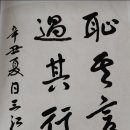 恥其言
過其行
辛丑夏日三江